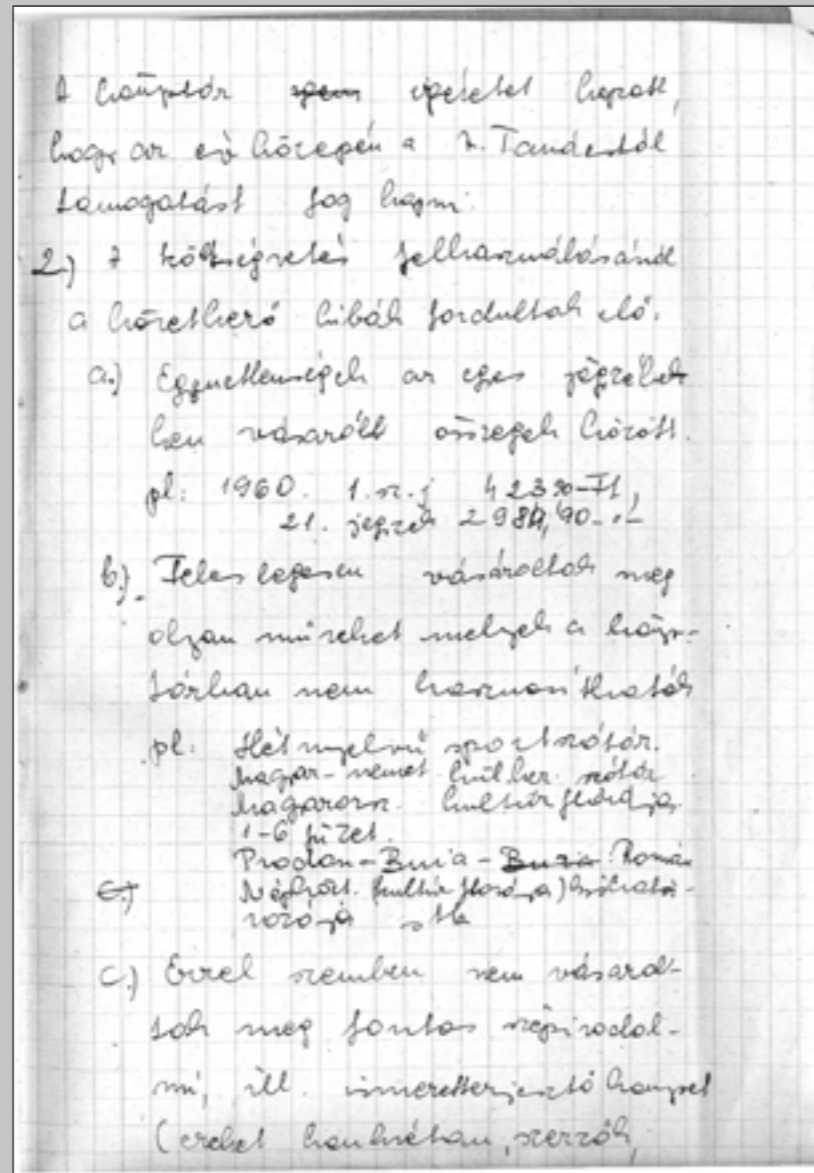 A könyvtár igéretet kapott,
hogy az év közepén a T. Tanácstól
támogatást fog kapni.
2.) A költségvetés felhasználásánál
a következő hibák fordultak elő.
a.) Egyenetlenségek az egyes jegyzékek
ben vásárolt összegek között.
pl: 1960. 1. sz. j 4230-Ft,
21. jegyzék
b.) Feleslegesen vásároltak meg
olyan műveket melyek a könyv-
tárban nem hasznosíthatók
pl: Hétnyelvű sportszótár.
Magyar-német külker. szótár
Magyarorsz. kultúrflórája
1-6 füzet.
Prodan-Buia-Buia: Román
Népközt. kultúr flórája) határ-
rozója stb
c.) Ezzel szemben nem vásárol-
tak meg fontos szépirodal-
mi, ill. ismeretterjesztő könyvet
(ezeket szerzők,